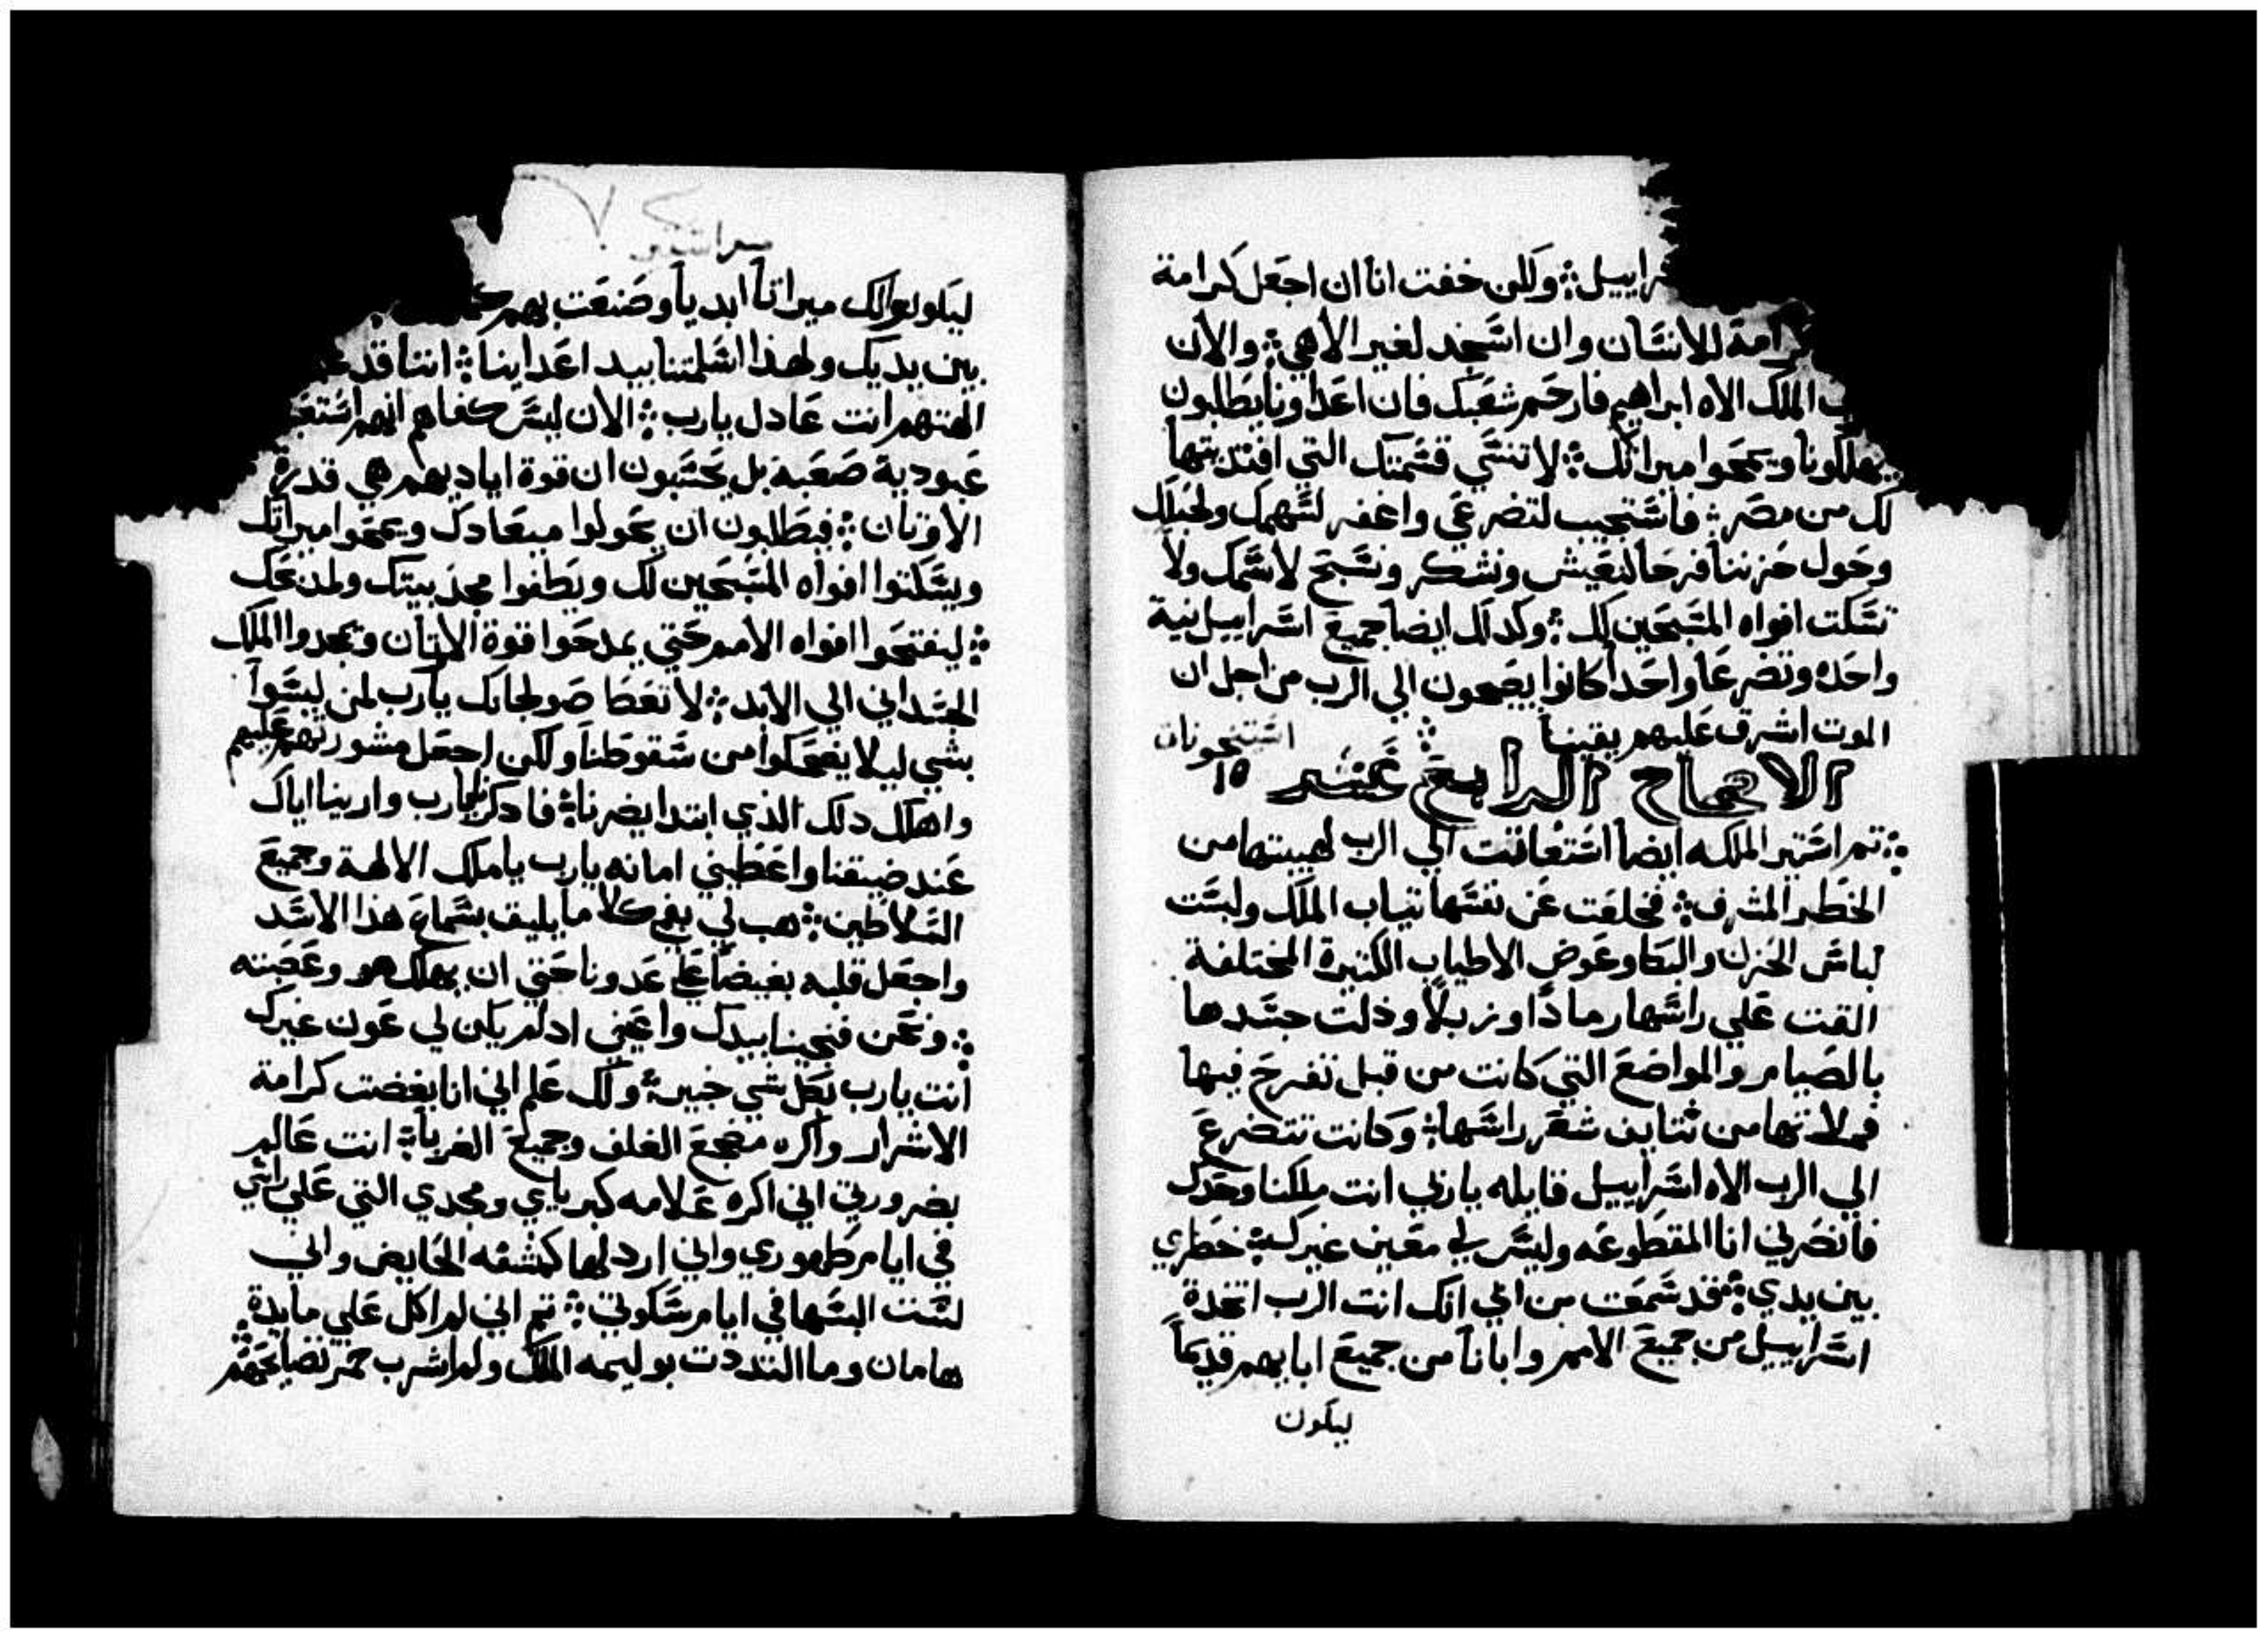 راييل ولكن خفت انا ان اجعل كرامة
كرامة للانسان وان اسجد لغير الاهي والان
الملك الاه ابراهيم فارحم شعبك فان اعداونا يطلبون
يهلكونا ويمحوا ميراتك لا تنسي قسمتك التي افتديتها
لك من مصر فاستجيب لتضرعي واغفر لسهمك ولحبلك
وحول حزننا فرحا لنعيش ونشكر ونسبح لاسمك ولا
تسكت افواه المسبحين لك وكدلك ايضا جميع اسراييل نية
واحده وتضرعا واحدا كانوا يضجون الي الرب من اجل ان
الموت اشرف عليهم يقينا
الاصحاح الرابع عشر ١٥
تم استير الملكه ايضا استغاتت الي الرب لهيبتها من
الخطر المشرف فخلعت عن نفسها تياب الملك ولبست
لباس الحزن والبكا وعوض الاطياب الكتيرة المختلفة
القت علي راسها رمادا وزبلا وذلت جسدها
بالصيام والمواضع التي كانت من قبل تفرح فيها
فملاتها من نتايف شعر راسها وكانت تتضرع
الي الرب الاه اسراييل قايله ياربي انت ملكنا وحدك
فانصرني انا المقطوعه وليس لي معين غيرك خطري
بين يدي فقد سمعت من ابي انك انت الرب اتخدة
اسراييل من جميع الامم واباناً من جميع ابايهم قديماً
ليكون
ليكونوا لك ميراتاً ابدياً وصنعت بهم
بين يديك ولهذا اسلمتنا بيد اعداينا اننا قد
الهتهم انت عادل يارب الان ليس كفاهم انهم
عبودية صعبة بل يحسبون ان قوة اياديهم هي قدرة
الاوتان فيطلبون ان يحولوا ميعادك ويمحوا ميراتك
ويسكتوا افواه المسبحين لك ويطفوا مجد بيتك ومدبحك
ليفتحوا افواه الامم حتي يمدحوا قوة الاوتان ويمجدوا الملك
الجسداني الي الابد لا تعطا صولجانك يارب لمن ليسوا
بشي ليلا يضحكوا من سقوطنا ولكن اجعل مشورتهم عليهم
واهلك دلك الذي ابتدا يضرنا فادكرنا يارب وارينا اياك
عند ضيقنا واعطيني امانه يارب ياملك الالهة وجميع
السلاطين هب لي بفي كلاما يليق بسماع هذا الاسد
واجعل قلبه بغيضا علي عدونا حتي ان يهلك هو وعصبته
ونحن فنجينا بيدك واعيني ادلم يكن لي عون غيرك
انت يارب بكل شي خبير ولك علم اني انا بغضت كرامة
الاشرار واكره مضجع الغلف وجميع الغربا انت عالم
بضرورتي اني اكره علامه كبرياي ومجدي التي علي راسي
في ايام ظهوري واني اردلها كمشقه الحايض واني
لست البسها في ايام سكوتي تم اني لم اكل علي مايدة
هامان وما التددت بوليمه الملك ولم اشرب خمر نضايحهم